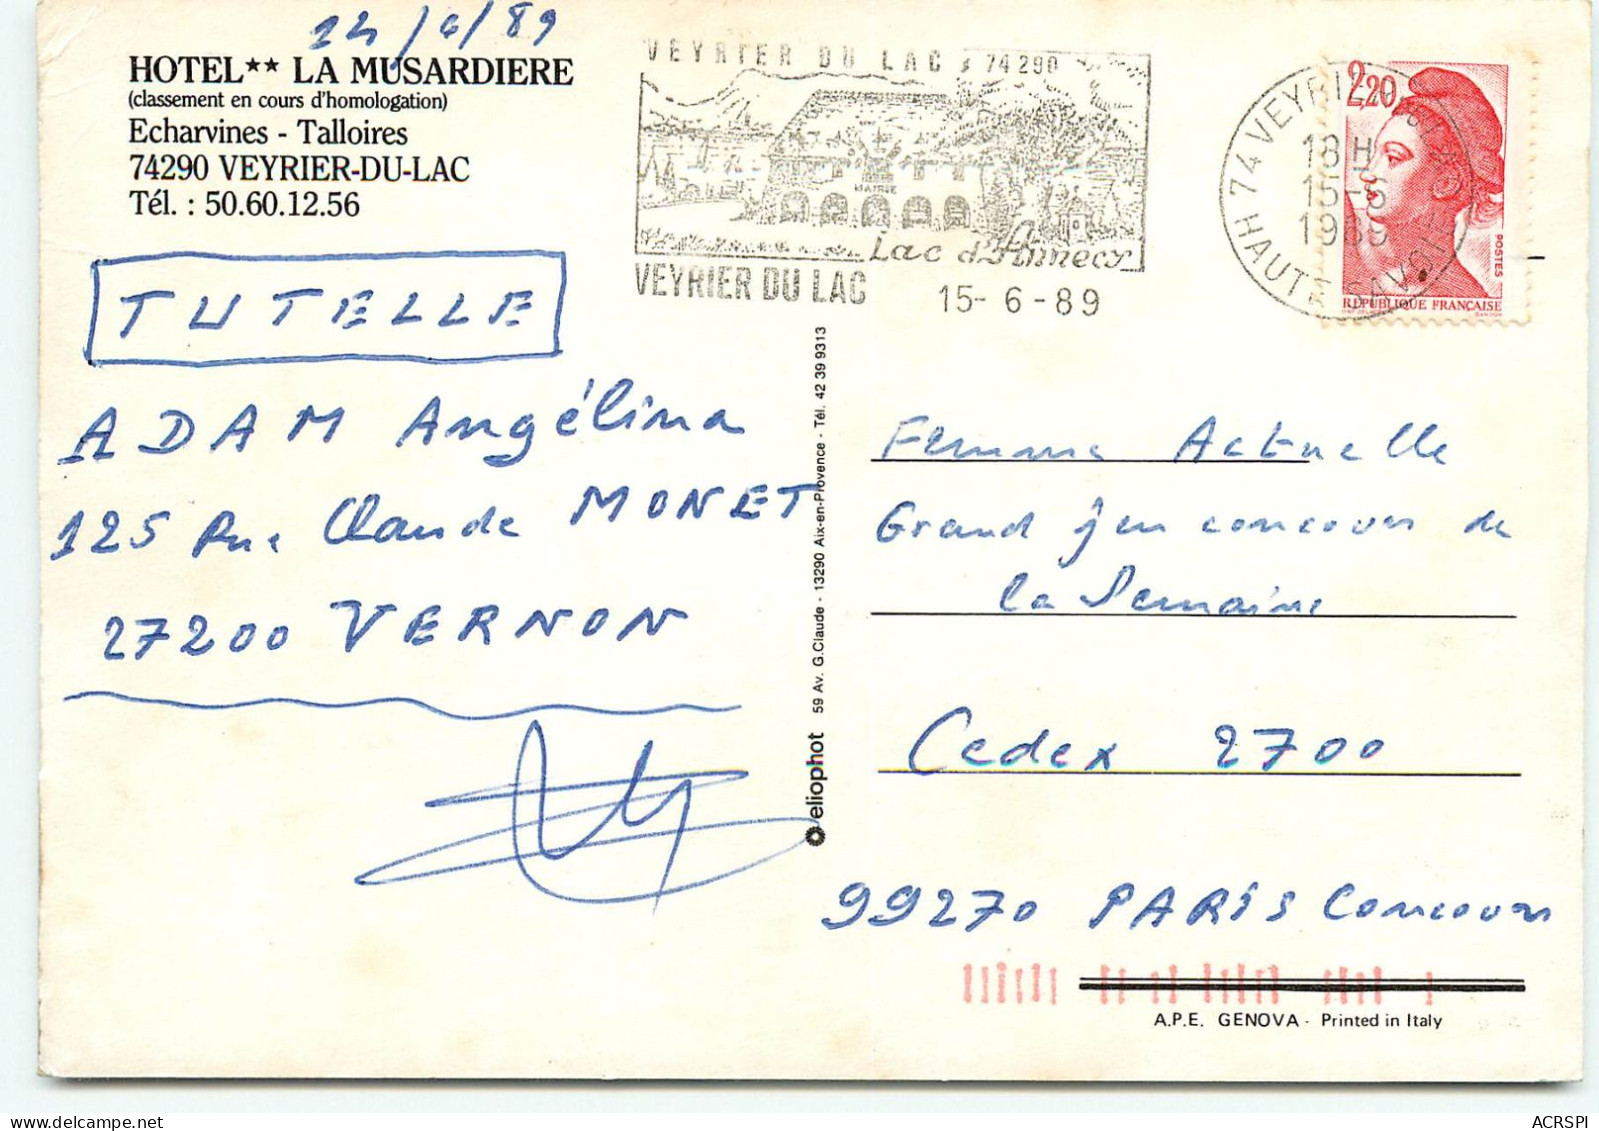 14/6/89
HOTEL** LA MUSARDIERE
(classement en cours d'homologation)
Echarvines - Talloires
74290 VEYRIER-DU-LAC
Tél. : 50.60.12.56
TUTELLE
ADAM Angélina
125 Rue Claude MONET
27200 VERNON
VEYRIER DU LAC 74290
MAIRIE
Lac d'Annecy
VEYRIER DU LAC
15-6-89
74 VEYRIER DU LAC
18H
15-6
1989
HAUTE SAVOIE
2,20
POSTES
REPUBLIQUE FRANÇAISE
GANDON
eliophot 59 Av. G.Claude - 13290 Aix-en-Provence - Tél. 42 39 9313
Femme Actuelle
Grand jeu concours de
la Semaine
Cedex 2700
99270 PARIS Concours
A.P.E. GENOVA - Printed in Italy
ACRSPI